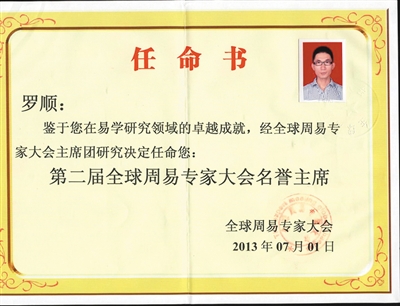 任命书
罗顺：
鉴于您在易学研究领域的卓越成就，经全球周易专
家大会主席团研究决定任命您：
第二届全球周易专家大会名誉主席
全球周易专家大会
2013 年 07 月 01 日